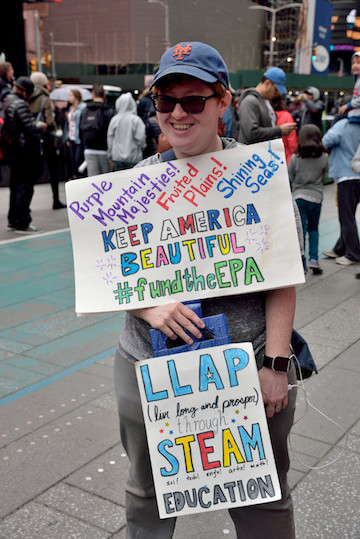 Purple
Mountain
Majesties!
Fruited
Plains!
Shining
Seas!
KEEP AMERICA
BEAUTIFUL
#fundtheEPA
LLAP
(live long and prosper)
through
STEAM
sci! tech! eng! arts! math!
EDUCATION